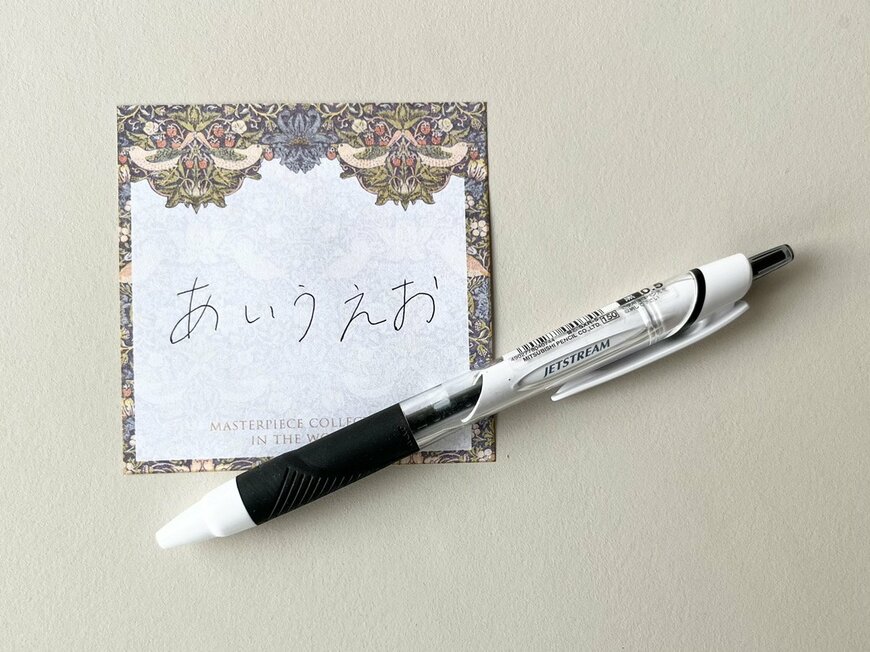 あいうえお
MASTERPIECE
IN THE
0.5
MITSUBISHI PENCIL CO.,LTD.
150
JETSTREAM